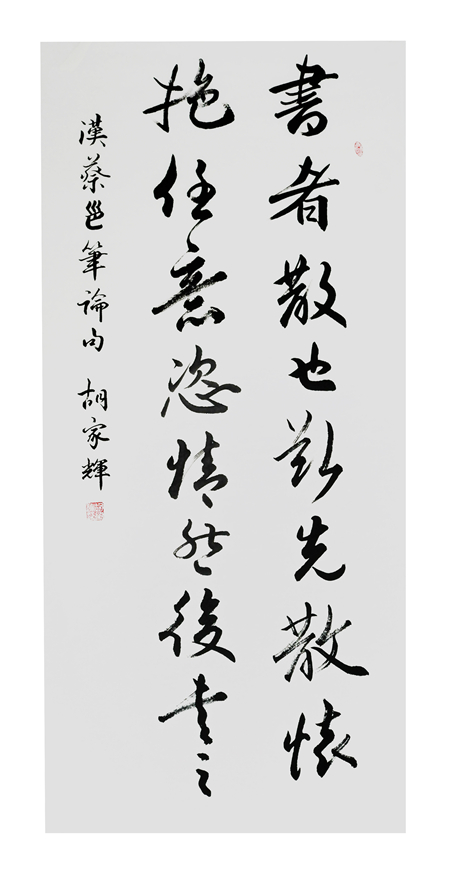 書者散也欲先散懷
抱任意恣情然後書之
漢蔡邕筆論句 胡家輝